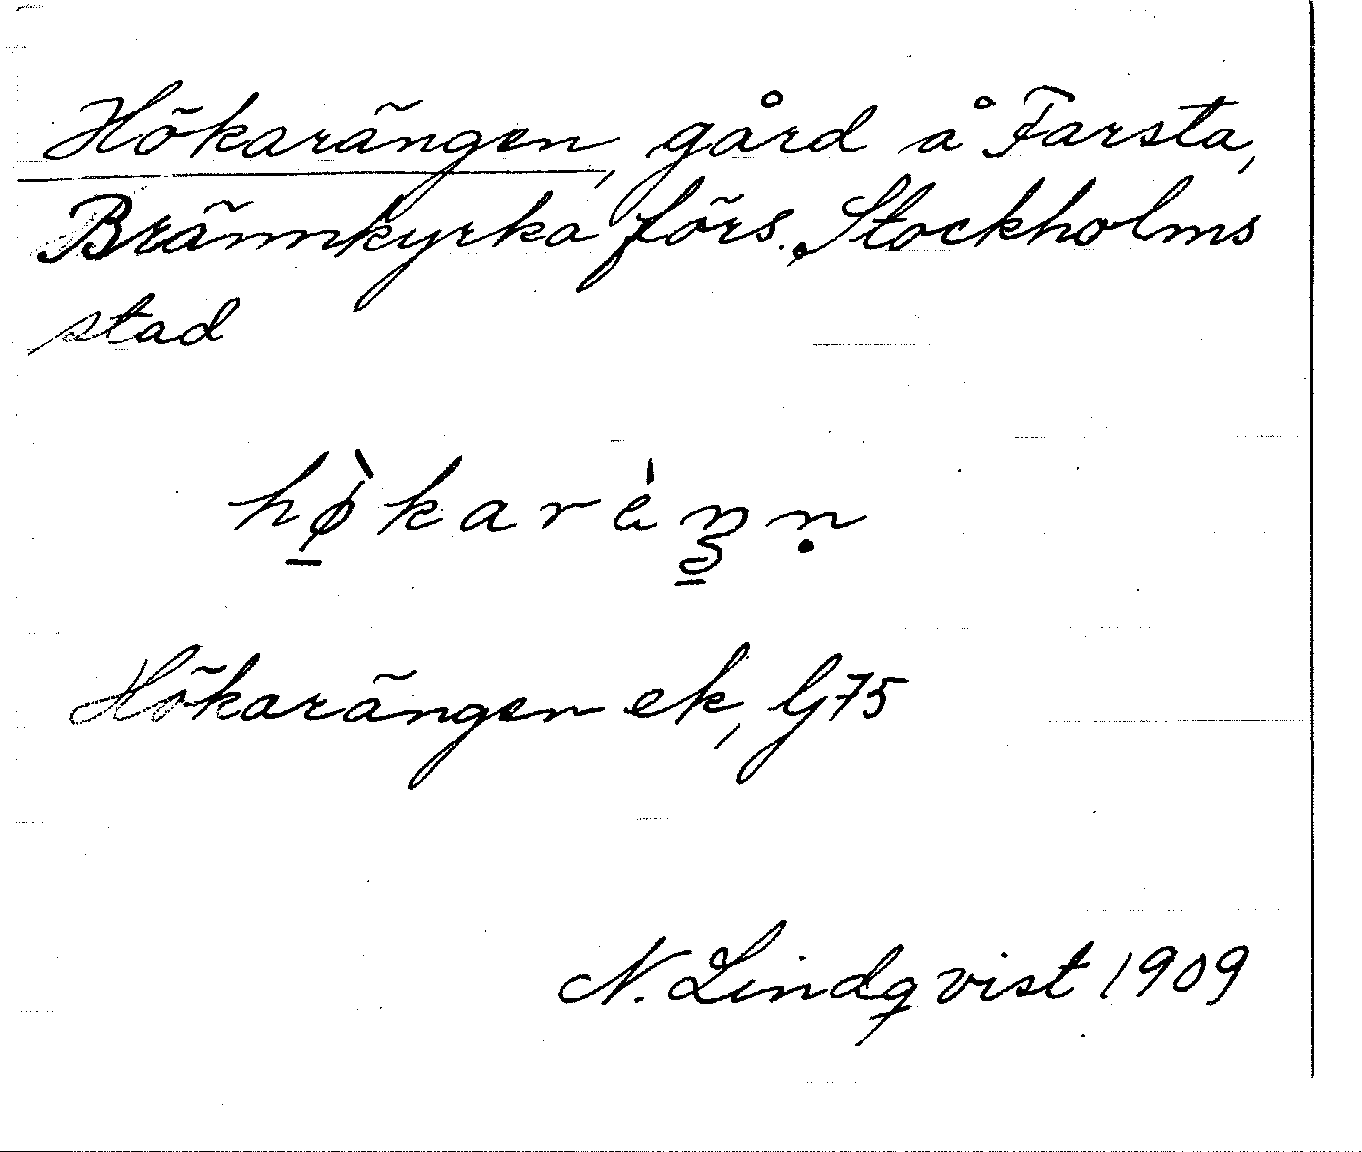 Hökarängen, gård å Farsta,
Brännkyrka förs. Stockholms
stad
hø̲̀karèŋ̲ṇ
Hökarängen ek, G75
N. Lindqvist 1909